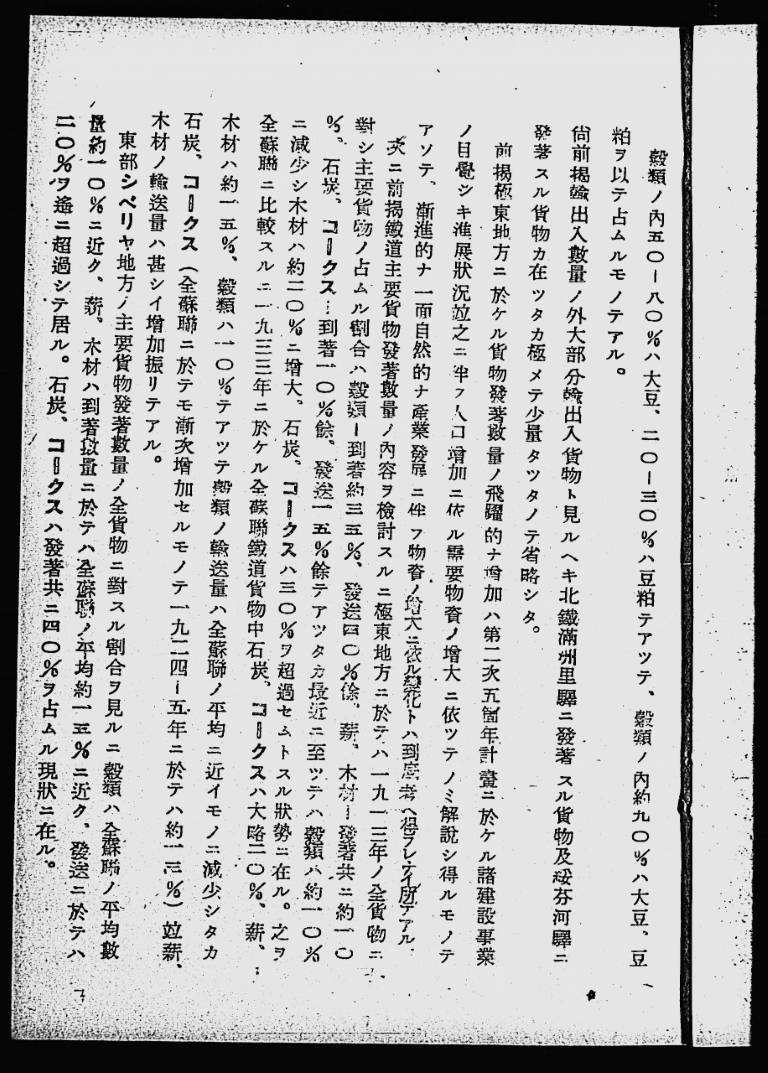 穀類ノ內五〇ー八〇％ハ大豆、二〇ー三〇％ハ豆粕テアツテ、穀類ノ內約九〇％ハ大豆、豆
粕ヲ以テ占ムルモノテアル。
尙前揭輸出入數量ノ外大部分輸出入貨物ト見ルヘキ北鐵滿洲里驛ニ發著スル貨物及綏芬河驛ニ
發著スル貨物カ在ツタカ極メテ少量タツタノテ省略シタ。
前揭極東地方ニ於ケル貨物發著數量ノ飛躍的ナ增加ハ第二次五箇年計畫ニ於ケル諸建設事業
ノ目覺シキ進展狀況竝之ニ伴フ人口增加ニ依ル需要物資ノ增大ニ依ツテノミ解說シ得ルモノテ
アソテ、漸進的ナ一面自然的ナ產業發展ニ伴フ物資ノ增大ニ依ル變化トハ到底考ヘ得ラレナイ所テアル。
次ニ前揭鐵道主要貨物發著數量ノ內容ヲ檢討スルニ極東地方ニ於テハ一九一三年ノ全貨物ニ
對シ主要貨物ノ占ムル割合ハ穀類ー到著約三五％、發送四〇％餘、薪、木材ー發著共ニ約一〇
％、石炭、コークス…到著一〇％餘、發送一五％餘テアツタカ最近ニ至ツテハ穀類ハ約一〇％
ニ減少シ木材ハ約二〇％ニ增大、石炭、コークスハ三〇％ヲ超過セムトスル狀勢ニ在ル。之ヲ
全蘇聯ニ比較スルニ一九三三年ニ於ケル全蘇聯鐵道貨物中石炭、コークスハ大略二〇％、薪、
木材ハ約一五％、穀類ハ一〇％テアツテ穀類ノ輸送量ハ全蘇聯ノ平均ニ近イモノニ減少シタカ
石炭、コークス（全蘇聯ニ於テモ漸次增加セルモノテ一九二四ー五年ニ於テハ約一三％）竝薪、
木材ノ輸送量ハ甚シイ增加振リテアル。
東部シベリヤ地方ノ主要貨物發著數量ノ全貨物ニ對スル割合ヲ見ルニ穀類ハ全蘇聯ノ平均數
量約一〇％ニ近ク、薪、木材ハ到著數量ニ於テハ全蘇聯ノ平均約一五％ニ近ク、發送ニ於テハ
二〇％ヲ遙ニ超過シテ居ル。石炭、コークスハ發著共ニ四〇％ヲ占ムル現狀ニ在ル。